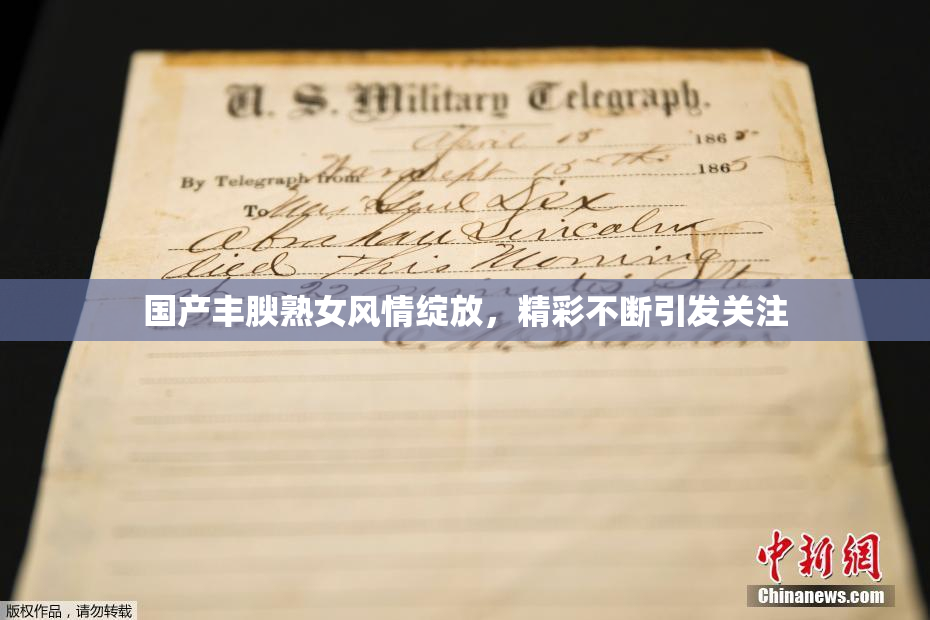 U. S. Military Telegraph.
April 15 1865
By Telegraph from War Dept 15th 1865
To Maj Genl Dix
Abraham Lincoln
died This Morning
22 minutes after
国产丰腴熟女风情绽放，精彩不断引发关注
E. M. Stanton
中新網
Chinanews.com
版权作品，请勿转载